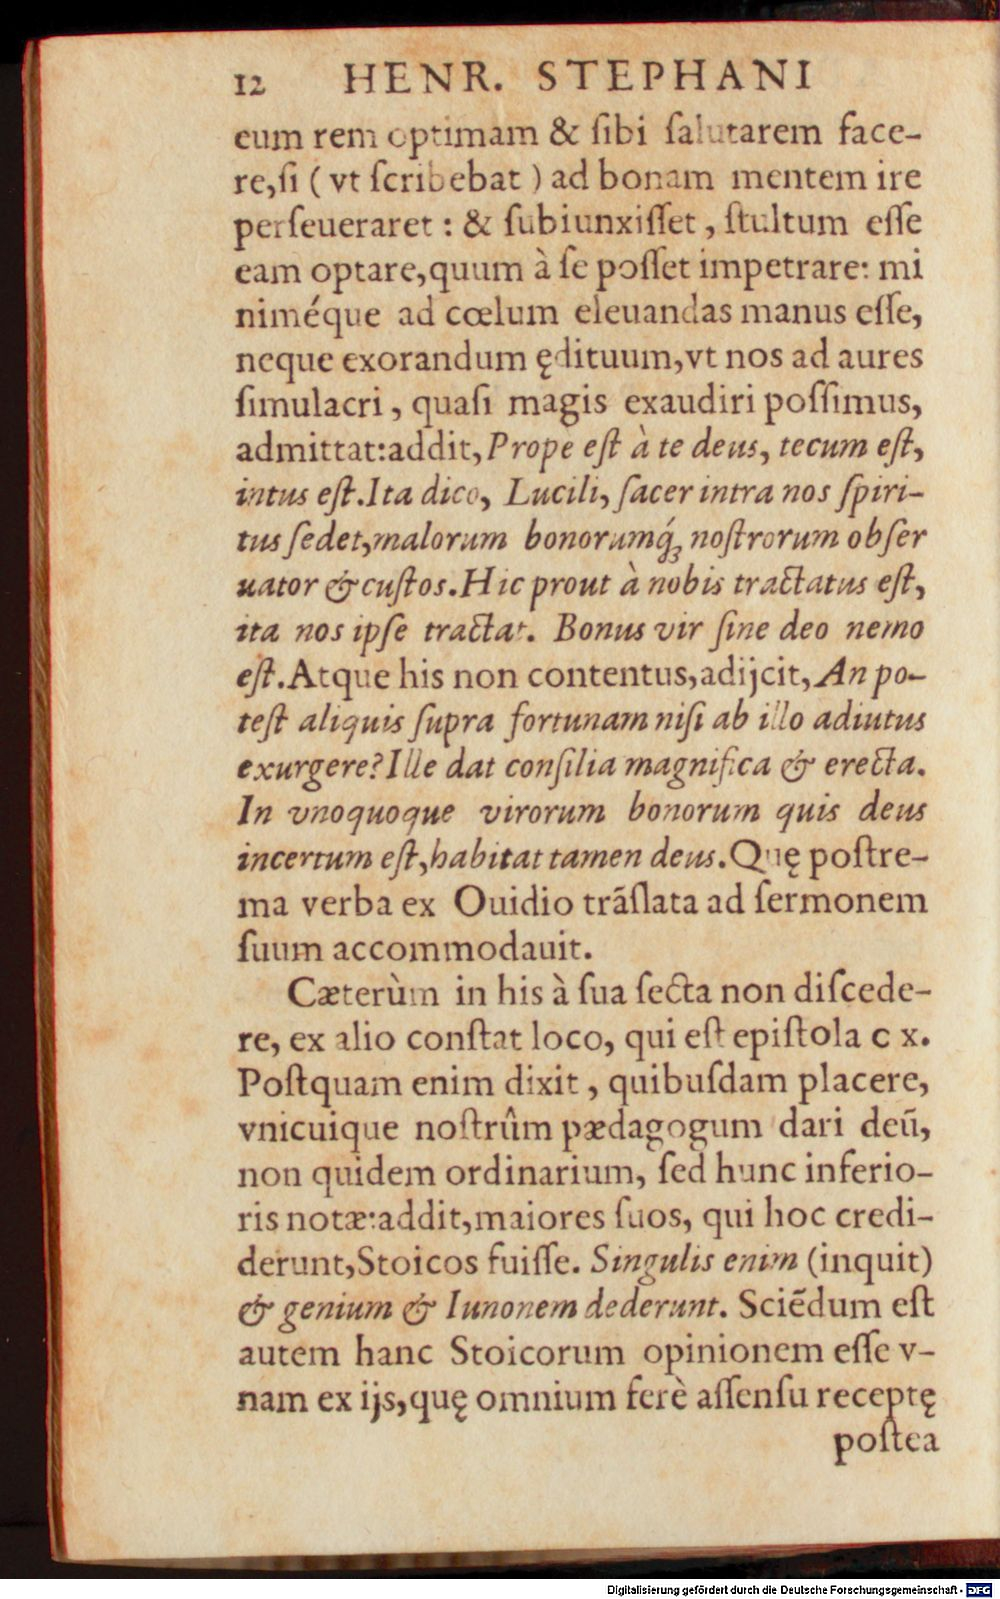 12 HENR. STEPHANI
eum rem optimam & ſibi ſalutarem face-
re,ſi ( vt ſcribebat ) ad bonam mentem ire
perſeueraret : & ſubiunxiſſet , ſtultum eſſe
eam optare,quum à ſe poſſet impetrare: mi
niméque ad cœlum eleuandas manus eſſe,
neque exorandum ędituum,vt nos ad aures
ſimulacri , quaſi magis exaudiri poſſimus,
admittat:addit, Prope eſt à te deus, tecum eſt,
intus eſt.Ita dico, Lucili, ſacer intra nos ſpiri-
tus ſedet,malorum bonorumq́ꝫ noſtrorum obſer
uator & cuſtos.Hic prout à nobis tractatus eſt,
ita nos ipſe tractat. Bonus vir ſine deo nemo
eſt.Atque his non contentus,adijcit, An po-
teſt aliquis ſupra fortunam niſi ab illo adiutus
exurgere? Ille dat conſilia magnifica & erecta.
In vnoquoque virorum bonorum quis deus
incertum eſt,habitat tamen deus.Quę poſtre-
ma verba ex Ouidio trãſlata ad ſermonem
ſuum accommodauit.
Cæterùm in his à ſua ſecta non diſcede-
re, ex alio conſtat loco, qui eſt epiſtola c x.
Poſtquam enim dixit , quibuſdam placere,
vnicuique noſtrûm pædagogum dari deũ,
non quidem ordinarium, ſed hunc inferio-
ris notæ:addit,maiores ſuos, qui hoc credi-
derunt,Stoicos fuiſſe. Singulis enim (inquit)
& genium & Iunonem dederunt. Sciẽdum eſt
autem hanc Stoicorum opinionem eſſe v-
nam ex ijs,quę omnium ferè aſſenſu receptę
poſtea
Digitalisierung gefördert durch die Deutsche Forschungsgemeinschaft - DFG